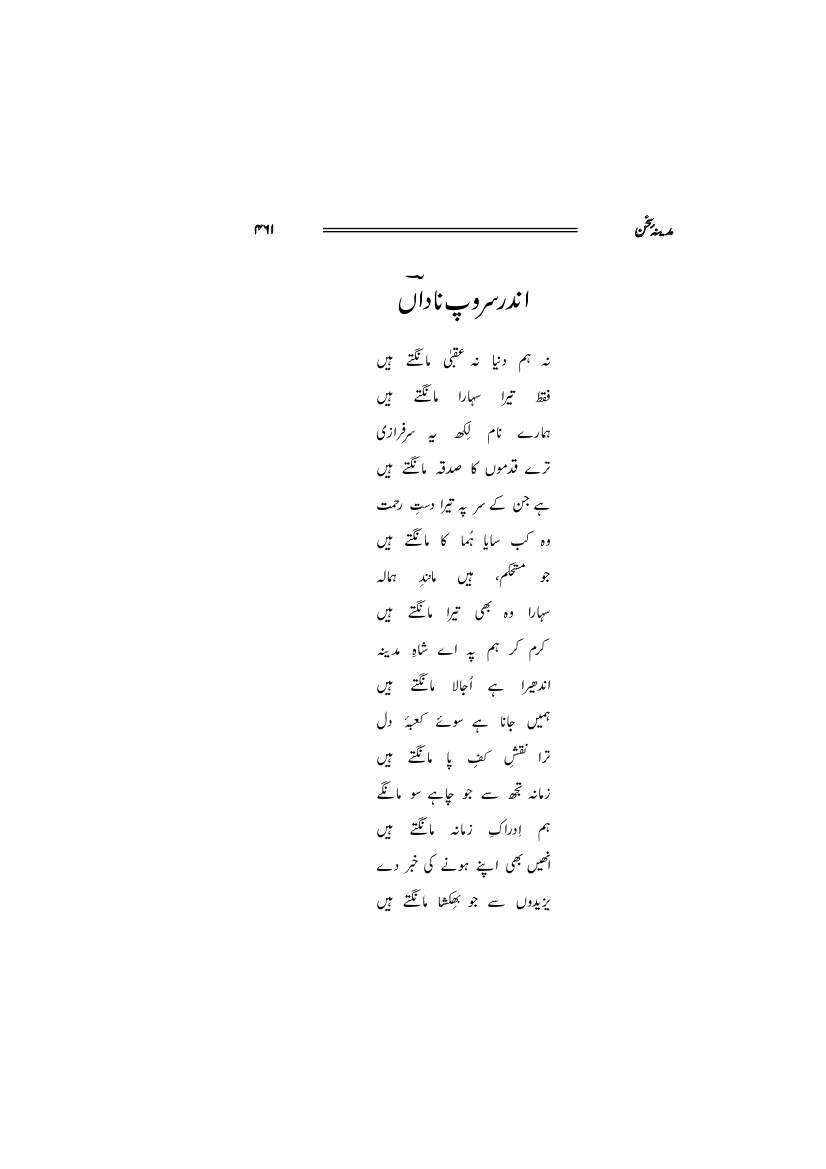 مدینۂ سخن ۴۶۱
اندرسروپ ناداںؔ
نہ ہم دنیا نہ عقبیٰ مانگتے ہیں
فقط تیرا سہارا مانگتے ہیں
ہمارے نام لِکھ یہ سرفرازی
ترے قدموں کا صدقہ مانگتے ہیں
ہے جن کے سر پہ تیرا دستِ رحمت
وہ کب سایا ہُما کا مانگتے ہیں
جو مستحکم، ہیں مانندِ ہمالہ
سہارا وہ بھی تیرا مانگتے ہیں
کرم کر ہم پہ اے شاہِ مدینہ
اندھیرا ہے اُجالا مانگتے ہیں
ہمیں جانا ہے سوئے کعبۂ دل
ترا نقشِ کفِ پا مانگتے ہیں
زمانہ تجھ سے جو چاہے سو مانگے
ہم اِدراکِ زمانہ مانگتے ہیں
انھیں بھی اپنے ہونے کی خبر دے
یزیدوں سے جو بھِکشا مانگتے ہیں